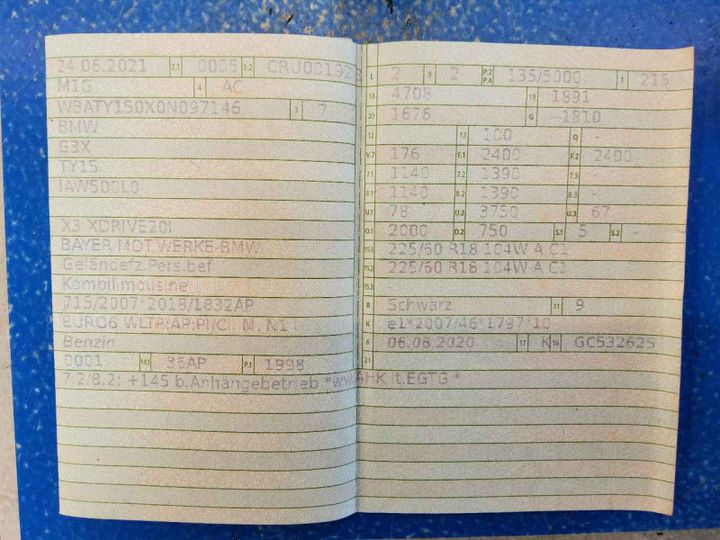 24 06.2021 2.1 0005 2.2 CRU001928
M1G 4 AC
WBATY150X0N097146 3 7
BMW
G3X
TY15
IAW500L0
X3 XDRIVE20I
BAYER.MOT.WERKE-BMW
Geländefz.Pers.bef
Kombilimousine
715/2007*2018/1832AP
EURO6 WLTP;AP;PI/CI; M, N1 I
Benzin
0001 14.1 36AP P.1 1998
7.2,8.2: +145 b.Anhängebetrieb *ww.AHK lt.EGTG *
L 2 9 2 P.2 P.4 135/5000 T 215
18 4708 19 1891
20 1676 G -1810
12 - 13 100 Q -
V.7 176 F.1 2400 F.2 2400
7.1 1140 7.2 1390 7.3 -
8.1 1140 8.2 1390 8.3 -
U.1 78 U.2 3750 U.3 67
O.1 2000 O.2 750 S.1 5 S.2 -
15.1 225/60 R18 104W A C1
15.2 225/60 R18 104W A C1
15.3 -
R Schwarz 11 9
K e1*2007/46*1797*10
6 06.08.2020 17 K 16 GC532625
21